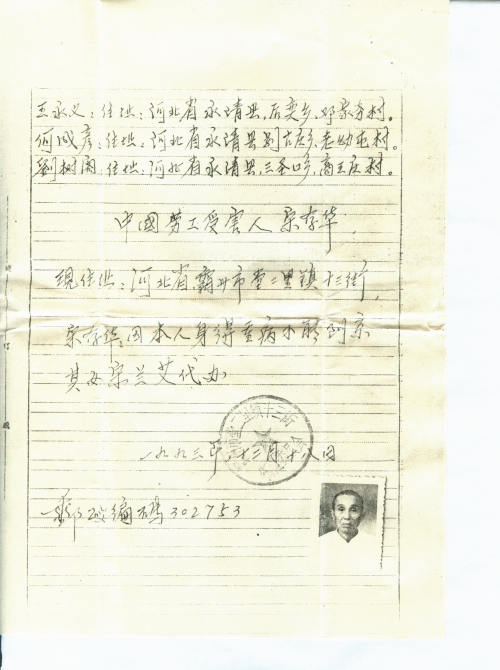 王永义：住址：河北省永清县，后奕乡，邓家务村。
何成彦：住址：河北省永清县别古庄乡，老幼屯村。
劉树国：住址：河北省永清县，三圣口乡，高王庄村。
中國劳工受害人宋存华，
现住址：河北省霸州市堂二里镇十三街，
宋存华因本人身得重病不能到京
其女宋兰艾代办
一九九三年十二月十八日
二里镇十三街
邮政编码302753